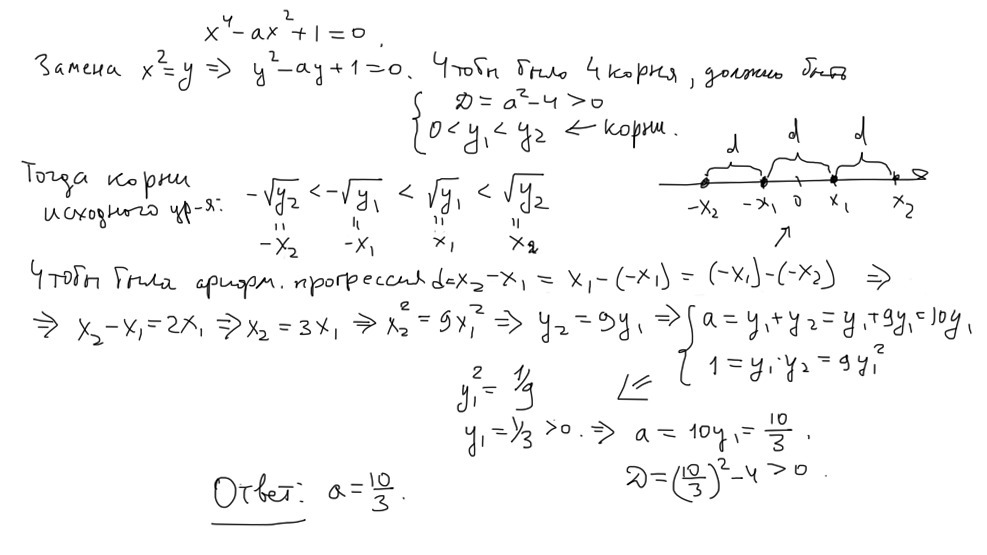 x⁴ - ax² + 1 = 0.
Замена x² = y ⇒ y² - ay + 1 = 0. Чтобы было 4 корня, должно быть
{ D = a² - 4 > 0
0 < y₁ < y₂ ← корни.
Тогда корни
исходного ур-я: -√y₂ < -√y₁ < √y₁ < √y₂
-x₂ -x₁ x₁ x₂
d d d
-x₂ -x₁ 0 x₁ x₂
Чтобы была арифм. прогрессия d = x₂ - x₁ = x₁ - (-x₁) = (-x₁) - (-x₂) ⇒
⇒ x₂ - x₁ = 2x₁ ⇒ x₂ = 3x₁ ⇒ x₂² = 9x₁² ⇒ y₂ = 9y₁ ⇒ { a = y₁ + y₂ = y₁ + 9y₁ = 10y₁
1 = y₁·y₂ = 9y₁²
y₁² = 1/9 ⇐
y₁ = 1/3 > 0. ⇒ a = 10y₁ = 10/3.
D = (10/3)² - 4 > 0.
Ответ: a = 10/3.